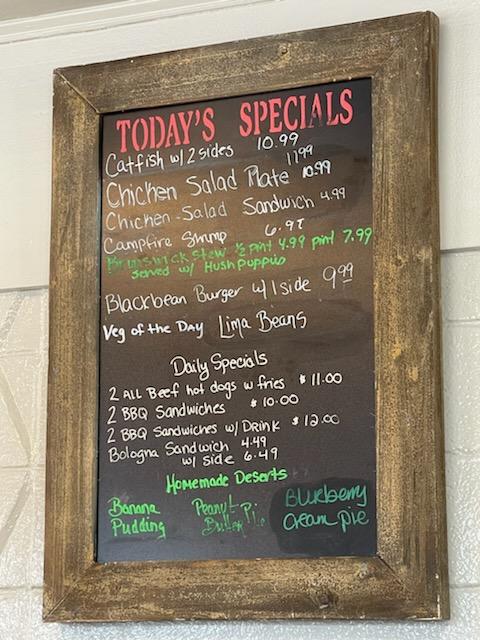 TODAY'S SPECIALS
Catfish w/ 2 sides 10.99
11.99
Chicken Salad Plate 10.99
Chicken-Salad Sandwich 4.99
Campfire Shrimp 6.99
Brunswick Stew ½ pint 4.99 pint 7.99
served w/ Hushpuppies
Blackbean Burger w/ 1 side 9.99
Veg of the Day Lima Beans
Daily Specials
2 ALL Beef hot dogs w fries $11.00
2 BBQ Sandwiches $10.00
2 BBQ Sandwiches w/ Drink $12.00
Bologna Sandwich 4.49
w/ side 6.49
Homemade Deserts
Banana Pudding
Peanut Butter Pie
Blueberry Cream pie